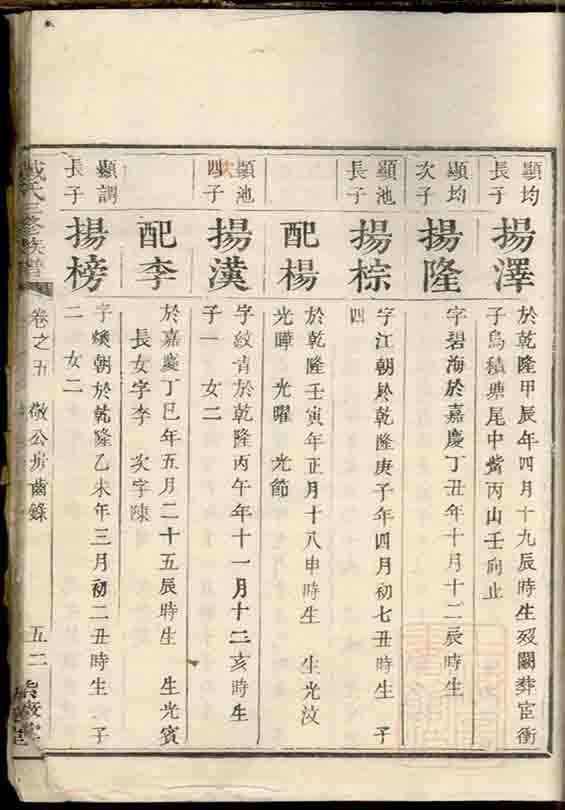 顯均
長子
揚澤
於乾隆甲辰年四月十九辰時生歿闕葬宦衝
子烏積㙩尾中嘴丙山壬向止
顯均
次子
揚隆
字碧海於嘉慶丁丑年十月十二辰時生
顯池
長子
揚棕
字江朝於乾隆庚子年四月初七丑時生 子
四
配楊
於乾隆壬寅年正月十八申時生 生光汶
光曄 光曜 光節
顯池
四子
次
揚漢
字紋肯於乾隆丙午年十一月十二亥時生
子一 女二
配李
於嘉慶丁巳年五月二十五辰時生 生光賓
長女字李 次字陳
顯調
長子
揚榜
字煥朝於乾隆乙未年三月初二丑時生 子
二 女二
戴氏三修族譜
卷之五 敬公房齒錄
五二